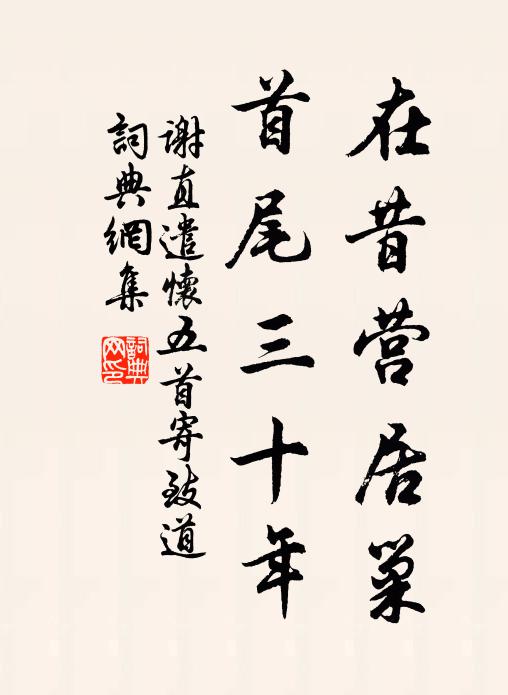 在昔营居巢
首尾三十年
谢直遣懷五首寄致道
詞典網集
詞典網印